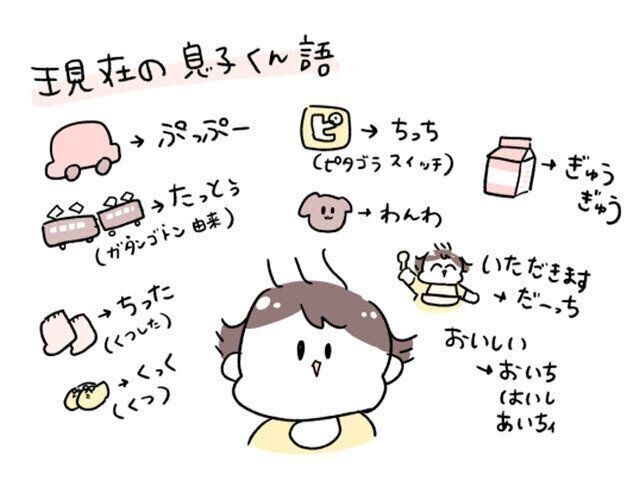 現在の息子くん語
→ ぷっぷー
→ たっとぅ
(ガタンゴトン由来)
→ ちった
(くつした)
→ くっく
(くつ)
ピ → ちっち
(ピタゴラスイッチ)
→ わんわ
→ ぎゅう
ぎゅう
いただきます
→ だーっち
おいしい
→ おいち
はいし
あいちぃ